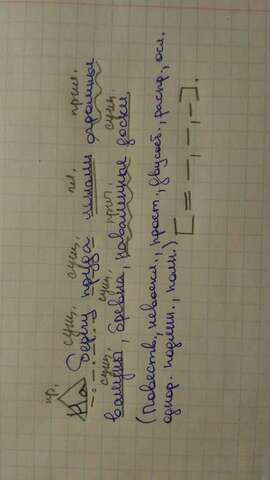 пр. сущ. сущ. гл. прил.
На берегу пруда лежали огромные
сущ. сущ. прил. сущ.
валуны, бревна, поваленные доски.
(Повеств., невоскл., прост., двусост., распр., осл.
однор. подлеж., полн.) [= –, –, –].